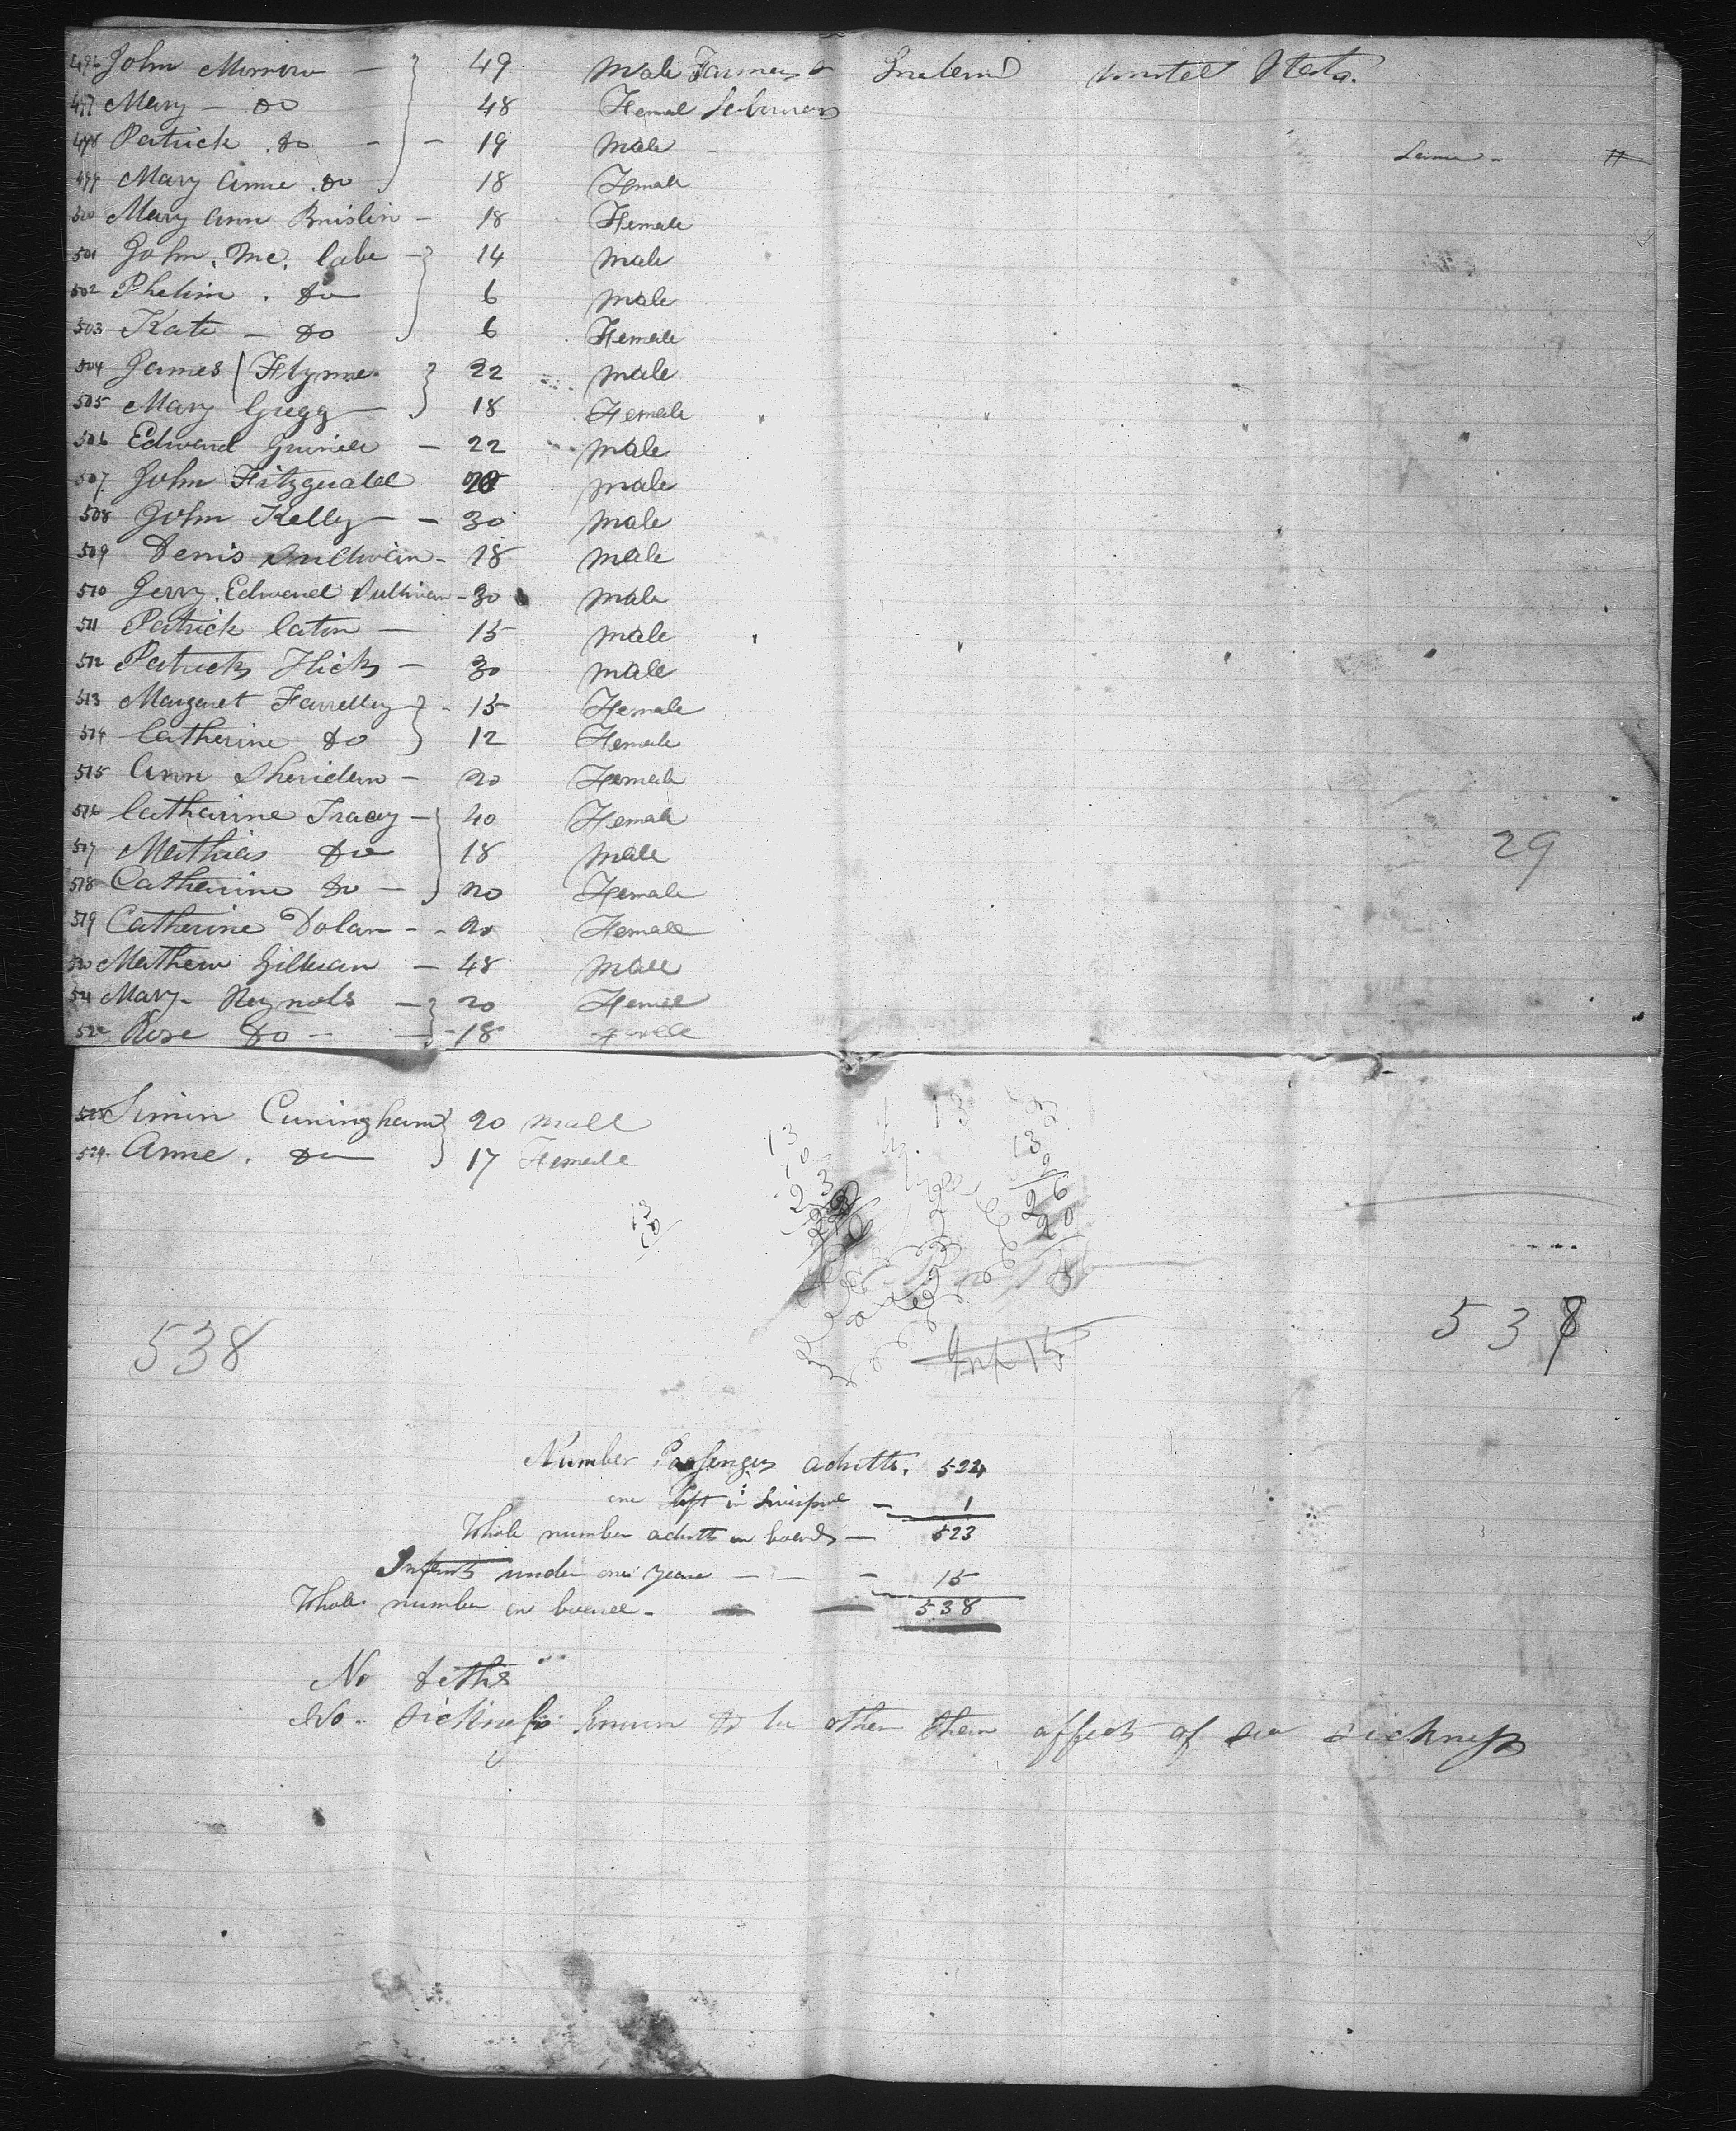 496 John Morrow - 49 Male Farmers & Ireland United States.
497 Mary - Do 48 Femal Labourers
498 Patrick . Do - - 19 Male
499 Mary Anne . Do 18 Female
500 Mary Ann Brislin - 18 Female
501 John . Mc. Cabe - 14 Male
502 Phelim . Do 6 Male
503 Kate - Do 6 Female
504 James Flynne 22 Male
505 Mary Gregg 18 Female
506 Edward - 22 Male
507 John Fitzgerald Male
508 John Kelly - - 30 Male
509 Denis Sullivan - 18 Male
510 Jerry . Edward Sullivan - 30 Male
511 Patrick Caton - 15 Male
512 Patrick Hicks - 30 Male
513 Margaret Farrelley - 15 Female
514 Catherine Do 12 Female
515 Ann Sheridan - 20 Female
516 Catharine Tracey - 40 Female
517 Mathias Do 18 Male
29
518 Catherine Do - 20 Female
519 Catherine Dolan - - 20 Female
520 Mathew - 48 Male
521 Mary - Reynols - 20 Female
522 Rose Do - - 18 Female
523 Simon Cuningham 20 Male
524 Anne . Do 17 Female
538
538
Inf 15
Number Passengers adults. 524
one left in Liverpool - 1
Whole number adults on board - 523
Infants under one year - - - 15
Whole number on board - 538
No deths
No. Sickness known to be other then affects of sea sickness